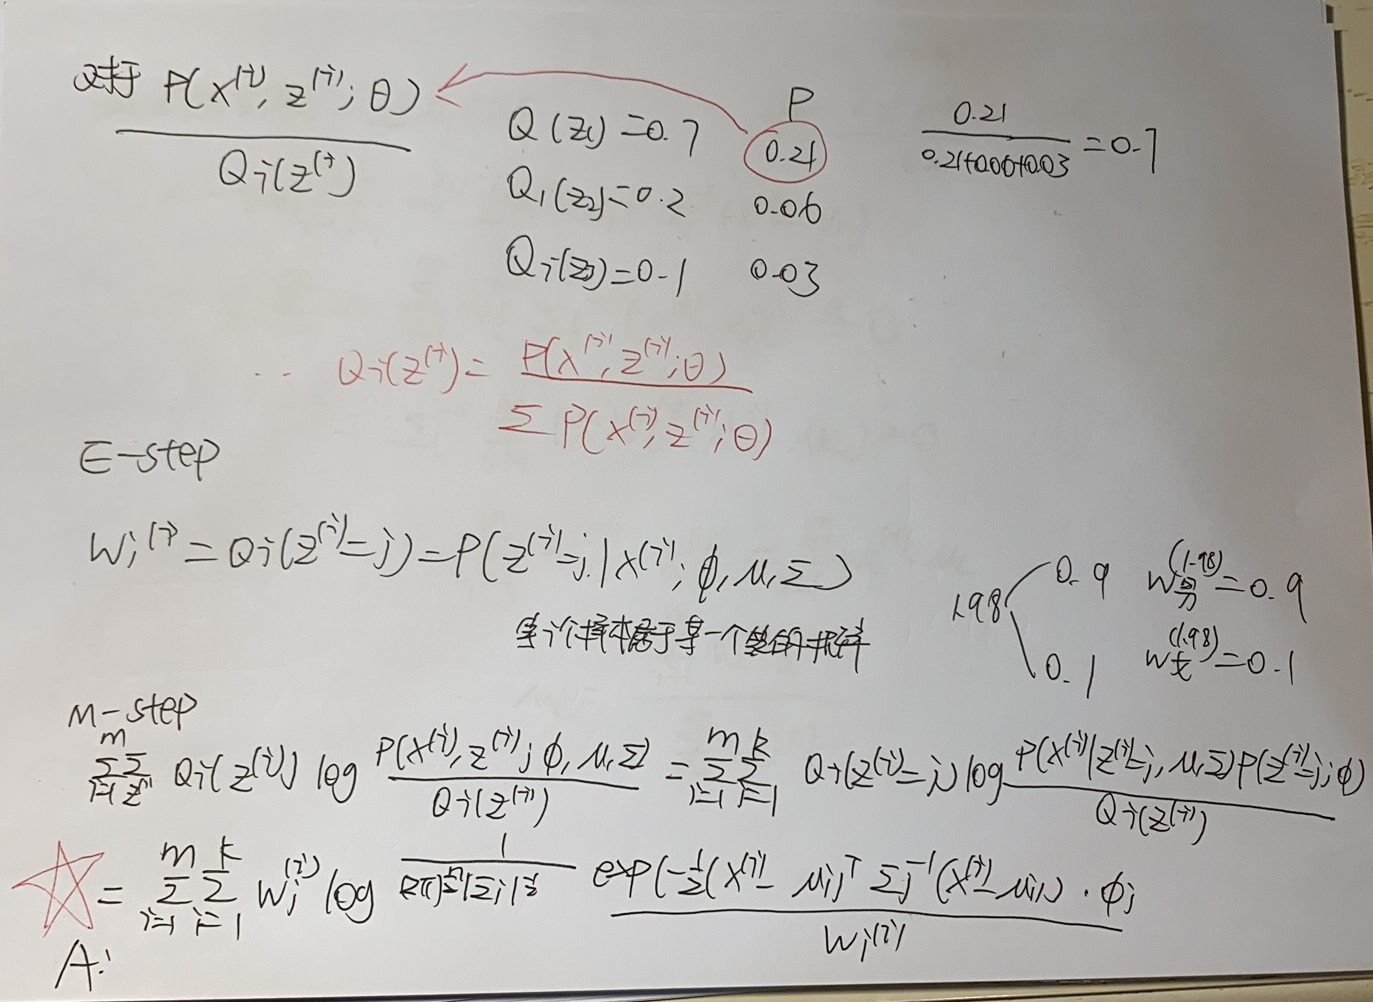 对于 P(x⁽ⁱ⁾, z⁽ⁱ⁾; θ) / Qi(z⁽ⁱ⁾)
P
Q(z1)=0.7 0.21
Q1(z2)=0.2 0.06
Qi(z3)=0.1 0.03
0.21 / 0.21+0.06+0.03 = 0.7
∴ Qi(z⁽ⁱ⁾) = P(x⁽ⁱ⁾, z⁽ⁱ⁾; θ) / Σ P(x⁽ⁱ⁾, z⁽ⁱ⁾; θ)
E-step
Wj⁽ⁱ⁾ = Qi(z⁽ⁱ⁾=j) = P(z⁽ⁱ⁾=j | x⁽ⁱ⁾; φ, μ, Σ)
每个样本属于某一个类的概率
1.98 0.9 W男⁽¹·⁹⁸⁾=0.9
0.1 W女⁽¹·⁹⁸⁾=0.1
M-step
Σᵢ₌₁ᵐ Σ_z⁽ⁱ⁾ Qi(z⁽ⁱ⁾) log P(x⁽ⁱ⁾, z⁽ⁱ⁾; φ, μ, Σ) / Qi(z⁽ⁱ⁾) = Σᵢ₌₁ᵐ Σⱼ₌₁ᵏ Qi(z⁽ⁱ⁾=j) log P(x⁽ⁱ⁾|z⁽ⁱ⁾=j, μ, Σ)P(z⁽ⁱ⁾=j; φ) / Qi(z⁽ⁱ⁾)
= Σᵢ₌₁ᵐ Σⱼ₌₁ᵏ Wj⁽ⁱ⁾ log 1 / (2π)^(n/2)|Σj|^(1/2) exp(-1/2(x⁽ⁱ⁾-μj)ᵀ Σj⁻¹(x⁽ⁱ⁾-μj)) · φj / Wj⁽ⁱ⁾
A: